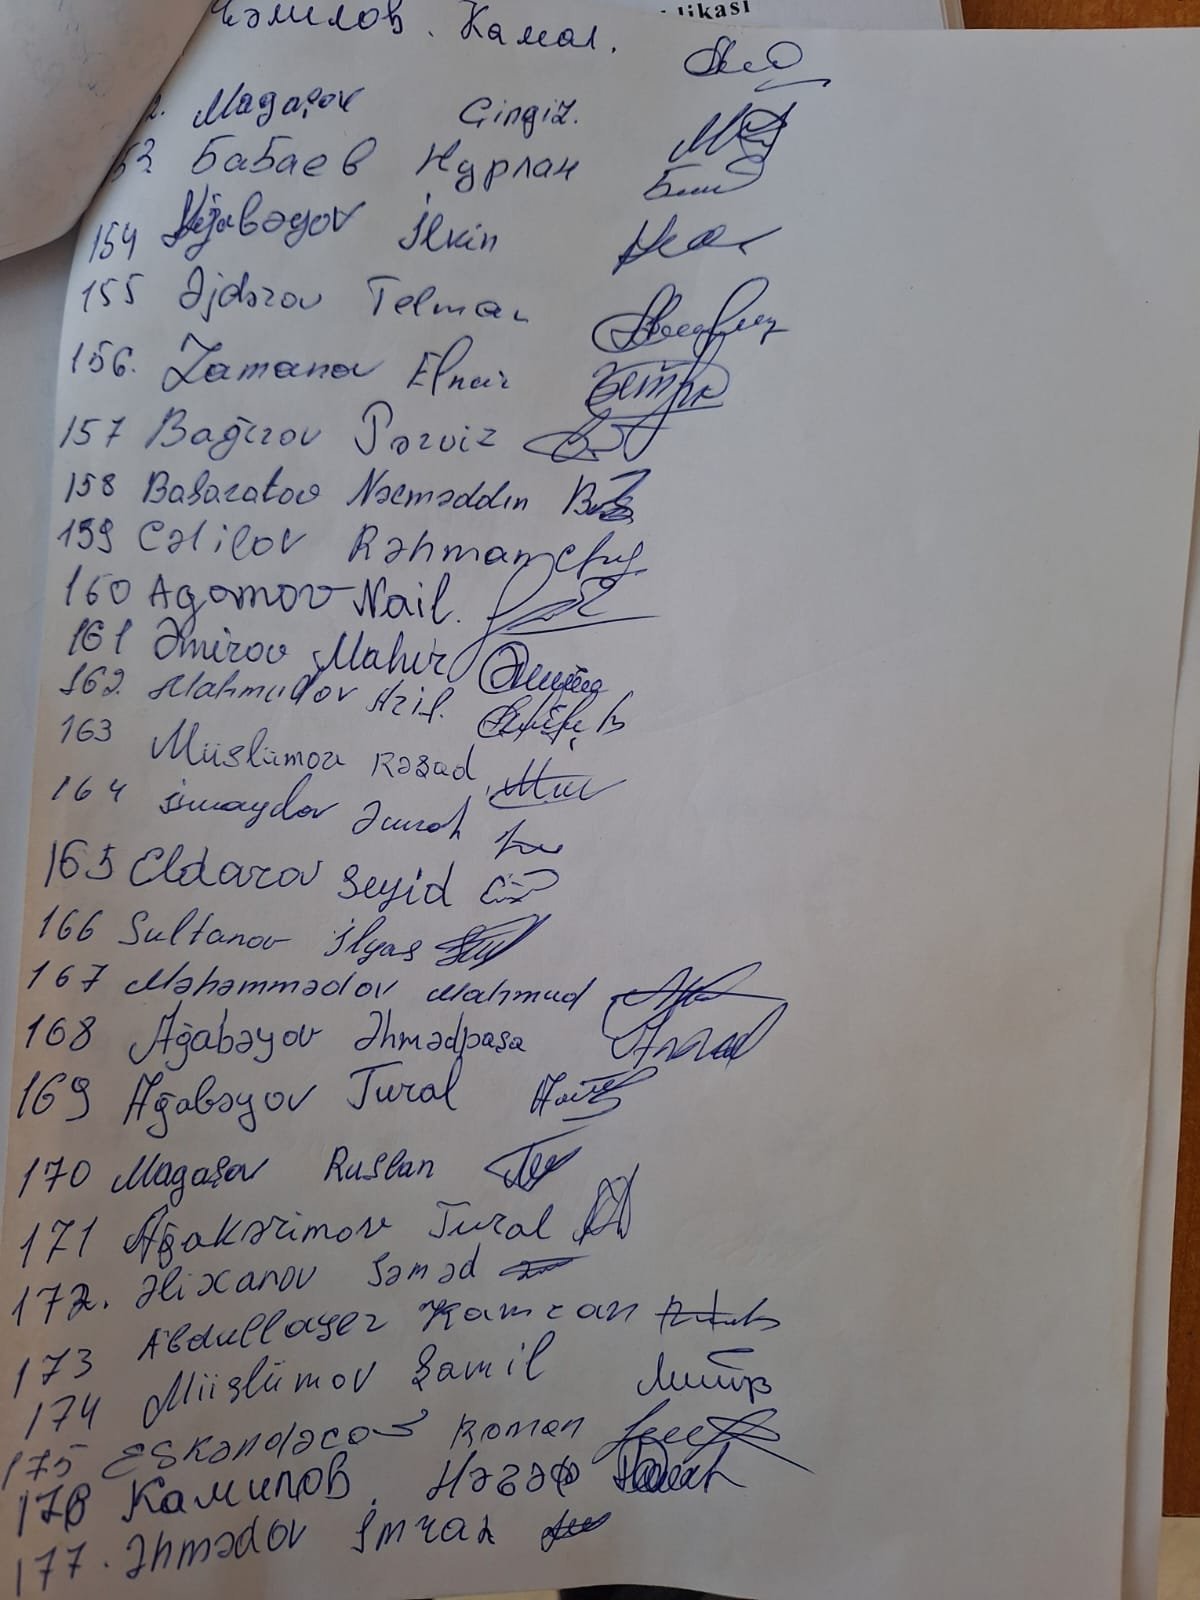 likası
Камал.
2. Magaşov Çingiz.
53 Бабаев Нурлан
154 Ağabəyov İlkin
155 Əjdərov Telman
156. Zamanov Elnur
157 Bağırov Pərviz
158 Başaratov Nəcməddin
159 Cəlilov Rəhman
160 Agamov Nail.
161 Əmirov Mahir
162. Mahmudov Azif.
163 Müslümov Rəşad
164 İsmayılov Əmrah
165 Eldarov Seyid
166 Sultanov İlyas
167 Məhəmmədov Mahmud
168 Ağabəyov Əhmədpaşa
169 Ağabəyov Tural
170 Magaşov Ruslan
171 Ağakərimov Tural
172. Əlixanov Səməd
173 Abdullayev Kamran
174 Müslümov Şamil
175 Eskəndərov Roman
176 Камилов. Нәҹәф
177. Əhmədov İmran